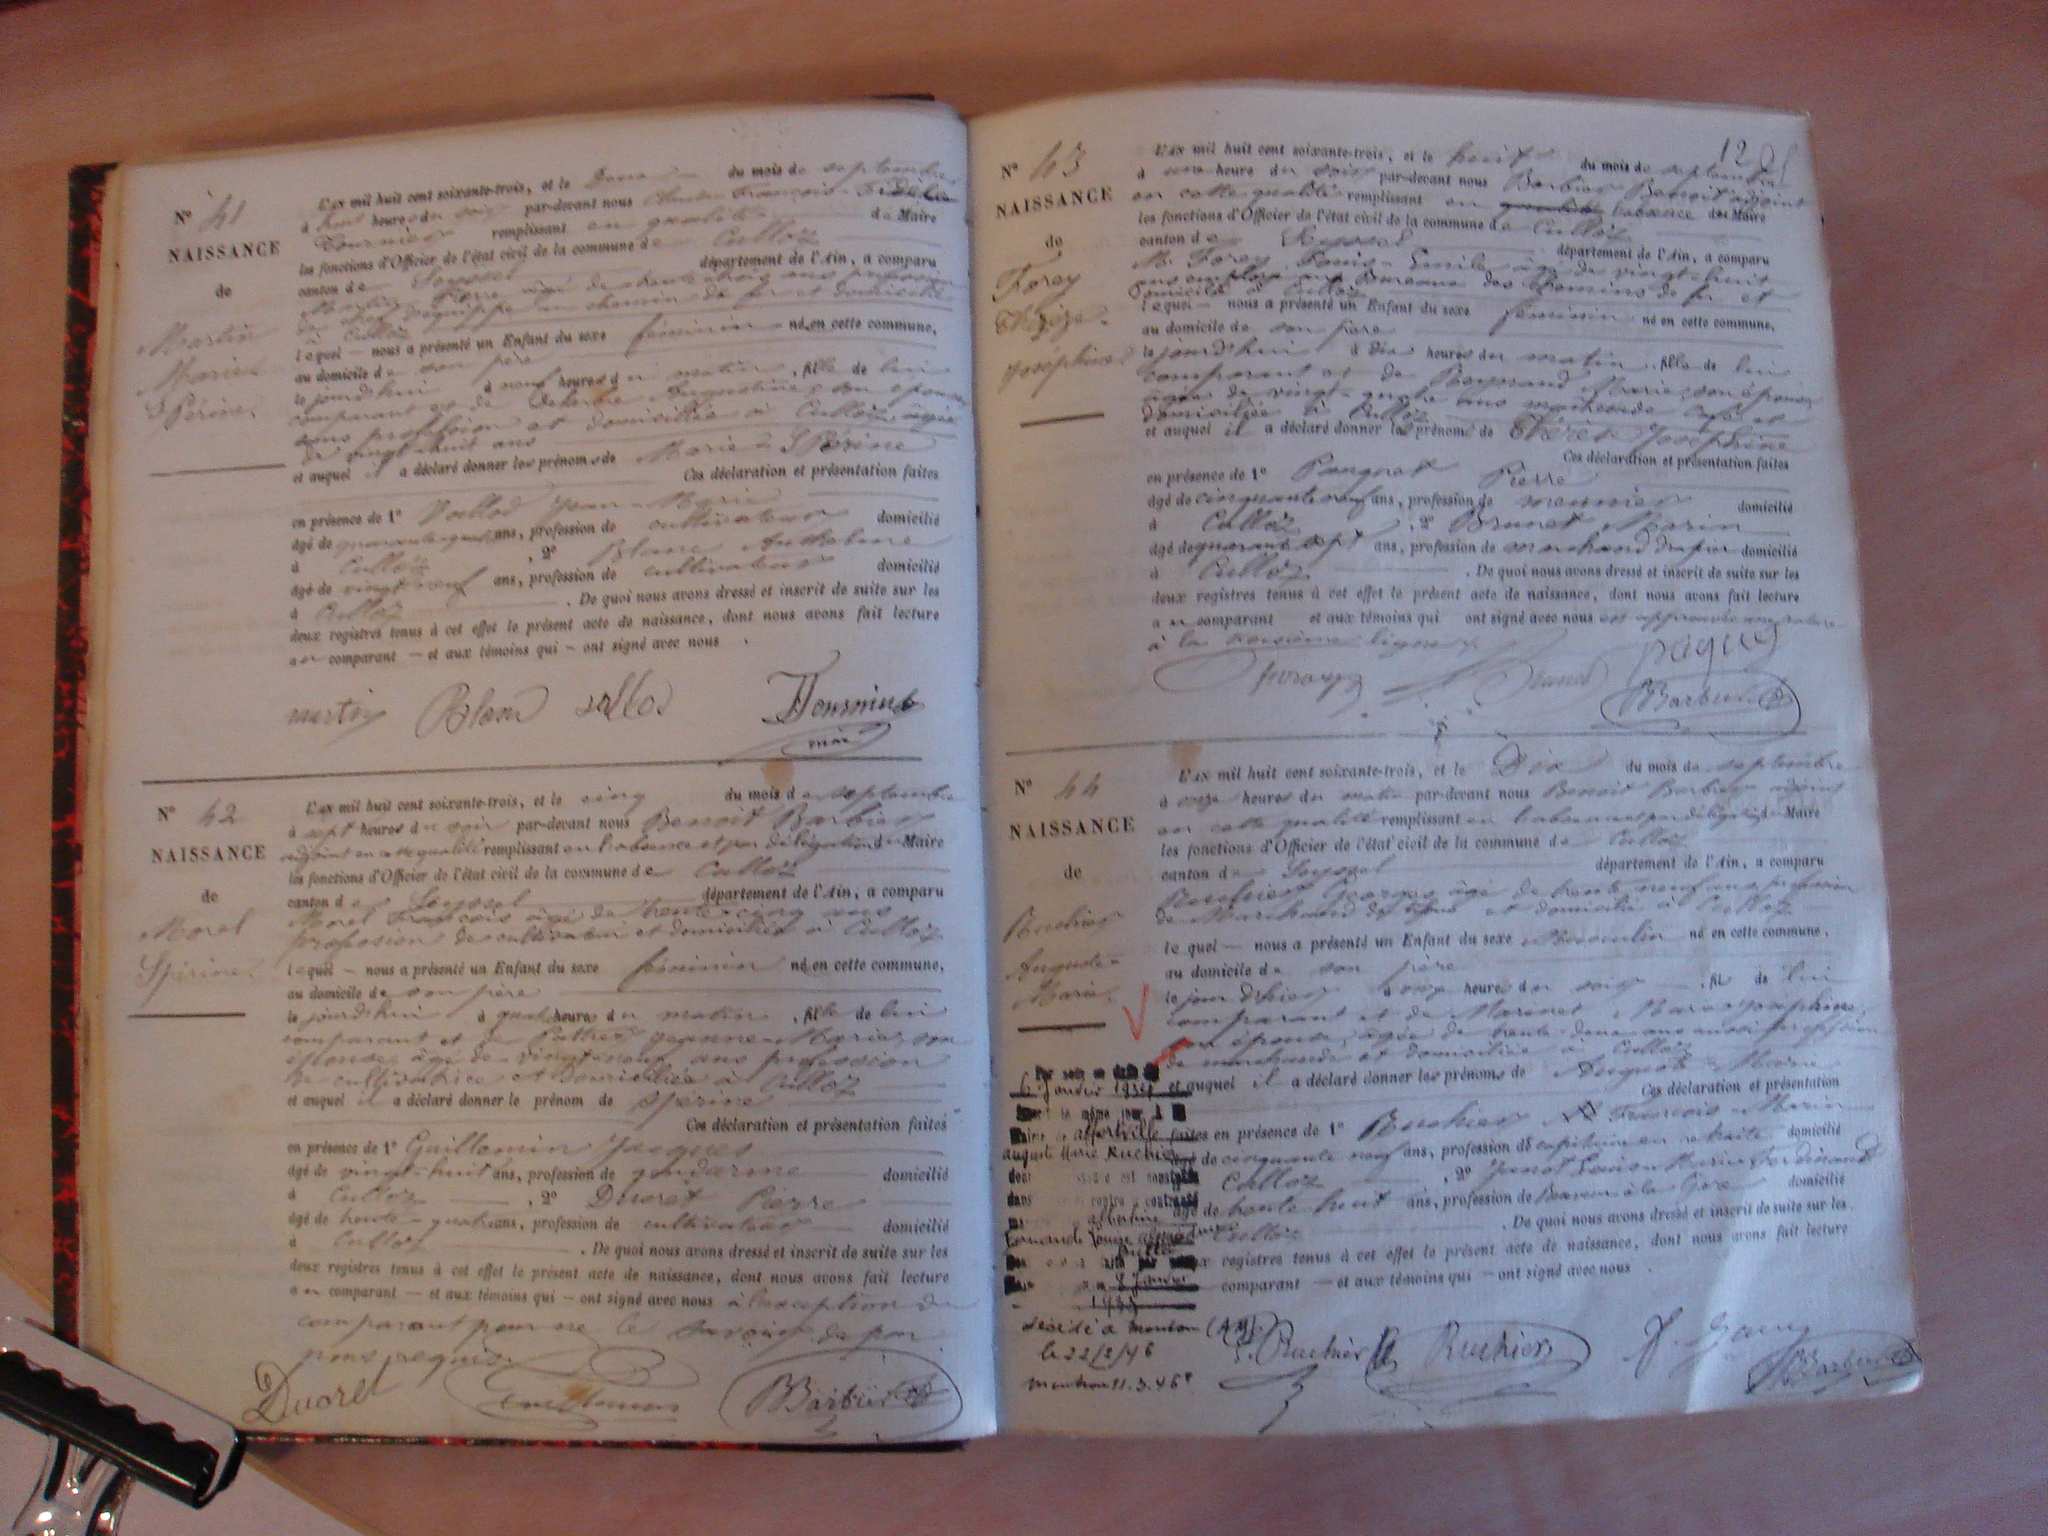 N° 41
NAISSANCE
de
Martin
Marie
Spérine.
L'AN mil huit cent soixante-trois, et le Deux du mois de septembre
à huit heures du soir par-devant nous Claude François Fidèle
Fournier remplissant en qualité de Maire
les fonctions d'Officier de l'état civil de la commune de Culloz
canton de Seyssel département de l'Ain, a comparu
Martin Pierre âgé de trente trois ans profession
de chef d'équipe au chemin de fer et domicilié
à Culloz
lequel — nous a présenté un Enfant du sexe féminin né en cette commune,
au domicile de son père
le jourd'hui à neuf heures du matin, fille de lui
comparant et de Augustine son épouse
sans profession et domiciliée à Culloz, âgée
de vingt huit ans
et auquel il a déclaré donner les prénoms de Marie Spérine
Ces déclaration et présentation faites
en présence de 1° Vallod Jean-Marie
âgé de ans, profession de cultivateur domicilié
à Culloz, 2° Blanc Anthelme
âgé de vingt neuf ans, profession de cultivateur domicilié
à Culloz. De quoi nous avons dressé et inscrit de suite sur les
deux registres tenus à cet effet le présent acte de naissance, dont nous avons fait lecture
au comparant — et aux témoins qui — ont signé avec nous.
martin Blanc vallod Fournier
maire
N° 42
NAISSANCE
de
Morel
Spérine.
L'AN mil huit cent soixante-trois, et le cinq du mois de septembre
à sept heures du soir par-devant nous Benoit Barbier
adjoint en cette qualité remplissant en l'absence et par délégation du Maire
les fonctions d'Officier de l'état civil de la commune de Culloz
canton de Seyssel département de l'Ain, a comparu
Morel François âgé de trente-cinq ans
profession de cultivateur et domicilié à Culloz
lequel — nous a présenté un Enfant du sexe féminin né en cette commune,
au domicile de son père
le jourd'hui à quatre heures du matin, fille de lui
comparant et de Jeanne-Marie son
épouse âgée de vingt-neuf ans profession
de cultivatrice et domiciliée à Culloz
et auquel il a déclaré donner le prénom de Spérine
Ces déclaration et présentation faites
en présence de 1° Guillomin Jacques
âgé de vingt-huit ans, profession de gendarme domicilié
à Culloz, 2° Ducret Pierre
âgé de trente-quatre ans, profession de cultivateur domicilié
à Culloz. De quoi nous avons dressé et inscrit de suite sur les
deux registres tenus à cet effet le présent acte de naissance, dont nous avons fait lecture
au comparant — et aux témoins qui — ont signé avec nous à l'exception du
comparant pour ne le savoir de par
nous requis.
Ducret Guillomin Barbier
12
N° 43
NAISSANCE
de
Forey
Thérèze
Joséphine
L'AN mil huit cent soixante-trois, et le huit du mois de septembre
à une heure du soir par-devant nous Barbier Benoit adjoint
en cette qualité remplissant en l'absence du Maire
les fonctions d'Officier de l'état civil de la commune de Culloz
canton de Seyssel département de l'Ain, a comparu
M. Forey Louis-Emile âgé de vingt-huit
ans employé aux Bureaux des Chemins de fer et
domicilié à Culloz
lequel — nous a présenté un Enfant du sexe féminin né en cette commune,
au domicile de son père
le jourd'hui à dix heures du matin, fille de lui
comparant et de Reymond Marie, son épouse
âgée de vingt-quatre ans marchande et
domiciliée à Culloz
et auquel il a déclaré donner les prénoms de Thérèze Joséphine
Ces déclaration et présentation faites
en présence de 1° Pierre
âgé de cinquante neuf ans, profession de meunier domicilié
à Culloz, 2° Brunet Marin
âgé de quarante sept ans, profession de marchand drapier domicilié
à Culloz. De quoi nous avons dressé et inscrit de suite sur les
deux registres tenus à cet effet le présent acte de naissance, dont nous avons fait lecture
au comparant et aux témoins qui ont signé avec nous et approuvé une rature
à la troisième ligne.
Barbier
N° 44
NAISSANCE
de
Ruchier
Auguste-
Marie.
L'AN mil huit cent soixante-trois, et le Dix du mois de septembre
à onze heures du matin par-devant nous Benoit Barbier adjoint
en cette qualité remplissant en l'absence et par délégation du Maire
les fonctions d'Officier de l'état civil de la commune de Culloz
canton de Seyssel département de l'Ain, a comparu
Ruchier Georges âgé de trente neuf ans profession
de Marchand de et domicilié à Culloz
lequel — nous a présenté un Enfant du sexe Masculin né en cette commune,
au domicile de son père
le jour d'hier à onze heures du soir, fils de lui
comparant et de Marie Joséphine,
son épouse, âgée de trente-deux ans aussi profession
de marchande et domiciliée à Culloz
et auquel il a déclaré donner les prénoms de Auguste Marie
Ces déclaration et présentation
faites en présence de 1° Ruchier François-Marin
âgé de cinquante neuf ans, profession de capitaine en retraite domicilié
à Culloz, 2° Louis-Marie Ferdinand
âgé de trente huit ans, profession de Receveur à la Gare domicilié
à Culloz. De quoi nous avons dressé et inscrit de suite sur les
deux registres tenus à cet effet le présent acte de naissance, dont nous avons fait lecture
au comparant — et aux témoins qui — ont signé avec nous.
6 Janvier 1934
le même jour à
Mairie de
Auguste Marie Ruchier
Albertine
Fernande Louise
8 Janvier
décédé à Menton (A.M).
le 22/2/46
Menton 11.3.46
Ruchier Ruchier Barbier